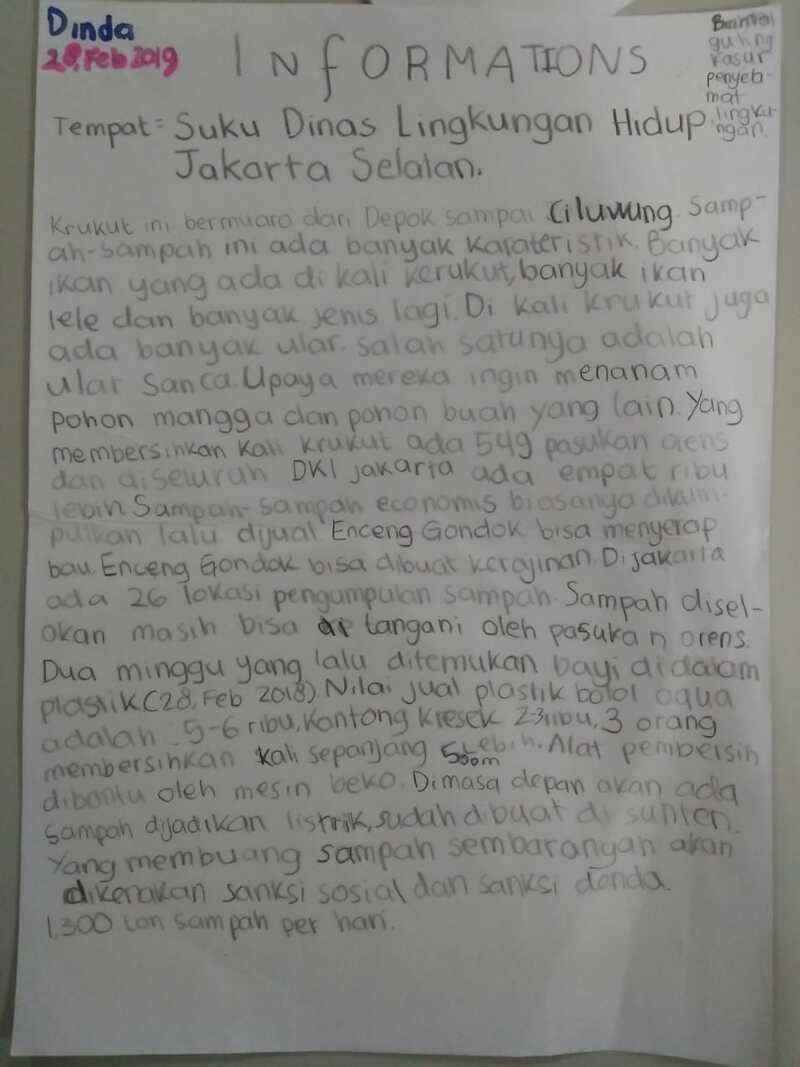 Dinda
28, Feb 2019
INfORMATIONS
Bantal
guling
kasur
penyeb-
mat
lingku-
ngan.
Tempat: Suku Dinas Lingkungan Hidup
Jakarta Selatan.
Krukut ini bermuara dari Depok sampai Ciluwung. Samp-
ah-sampah ini ada banyak karateristik. Banyak
ikan yang ada di kali kerukut, banyak ikan
lele dan banyak jenis lagi. Di kali krukut juga
ada banyak ular. salah satunya adalah
ular sanca. Upaya mereka ingin menanam
pohon mangga dan pohon buah yang lain. Yang
membersihkan kali krukut ada 549 pasukan orens
dan diseluruh DKI jakarta ada empat ribu
lebih Sampah-sampah economis biasanya dikum-
pulkan lalu dijual Enceng Gondok bisa menyerap
bau. Enceng Gondok bisa dibuat kerajinan. Dijakarta
ada 26 lokasi pengumpulan sampah. Sampah disel-
okan masih bisa di tangani oleh pasukan orens.
Dua minggu yang lalu ditemukan bayi didalam
plastik (28, Feb 2018). Nilai jual plastik botol aqua
adalah 5-6 ribu, Kantong kresek 2-3 ribu, 3 orang
membersihkan kali sepanjang 500m Lebih. Alat pembersih
dibantu oleh mesin beko. Dimasa depan akan ada
sampah dijadikan listrik, sudah dibuat di sunter.
Yang membuang sampah sembarangan akan
dikenakan sanksi sosial dan sanksi denda.
1.300 ton sampah per hari.